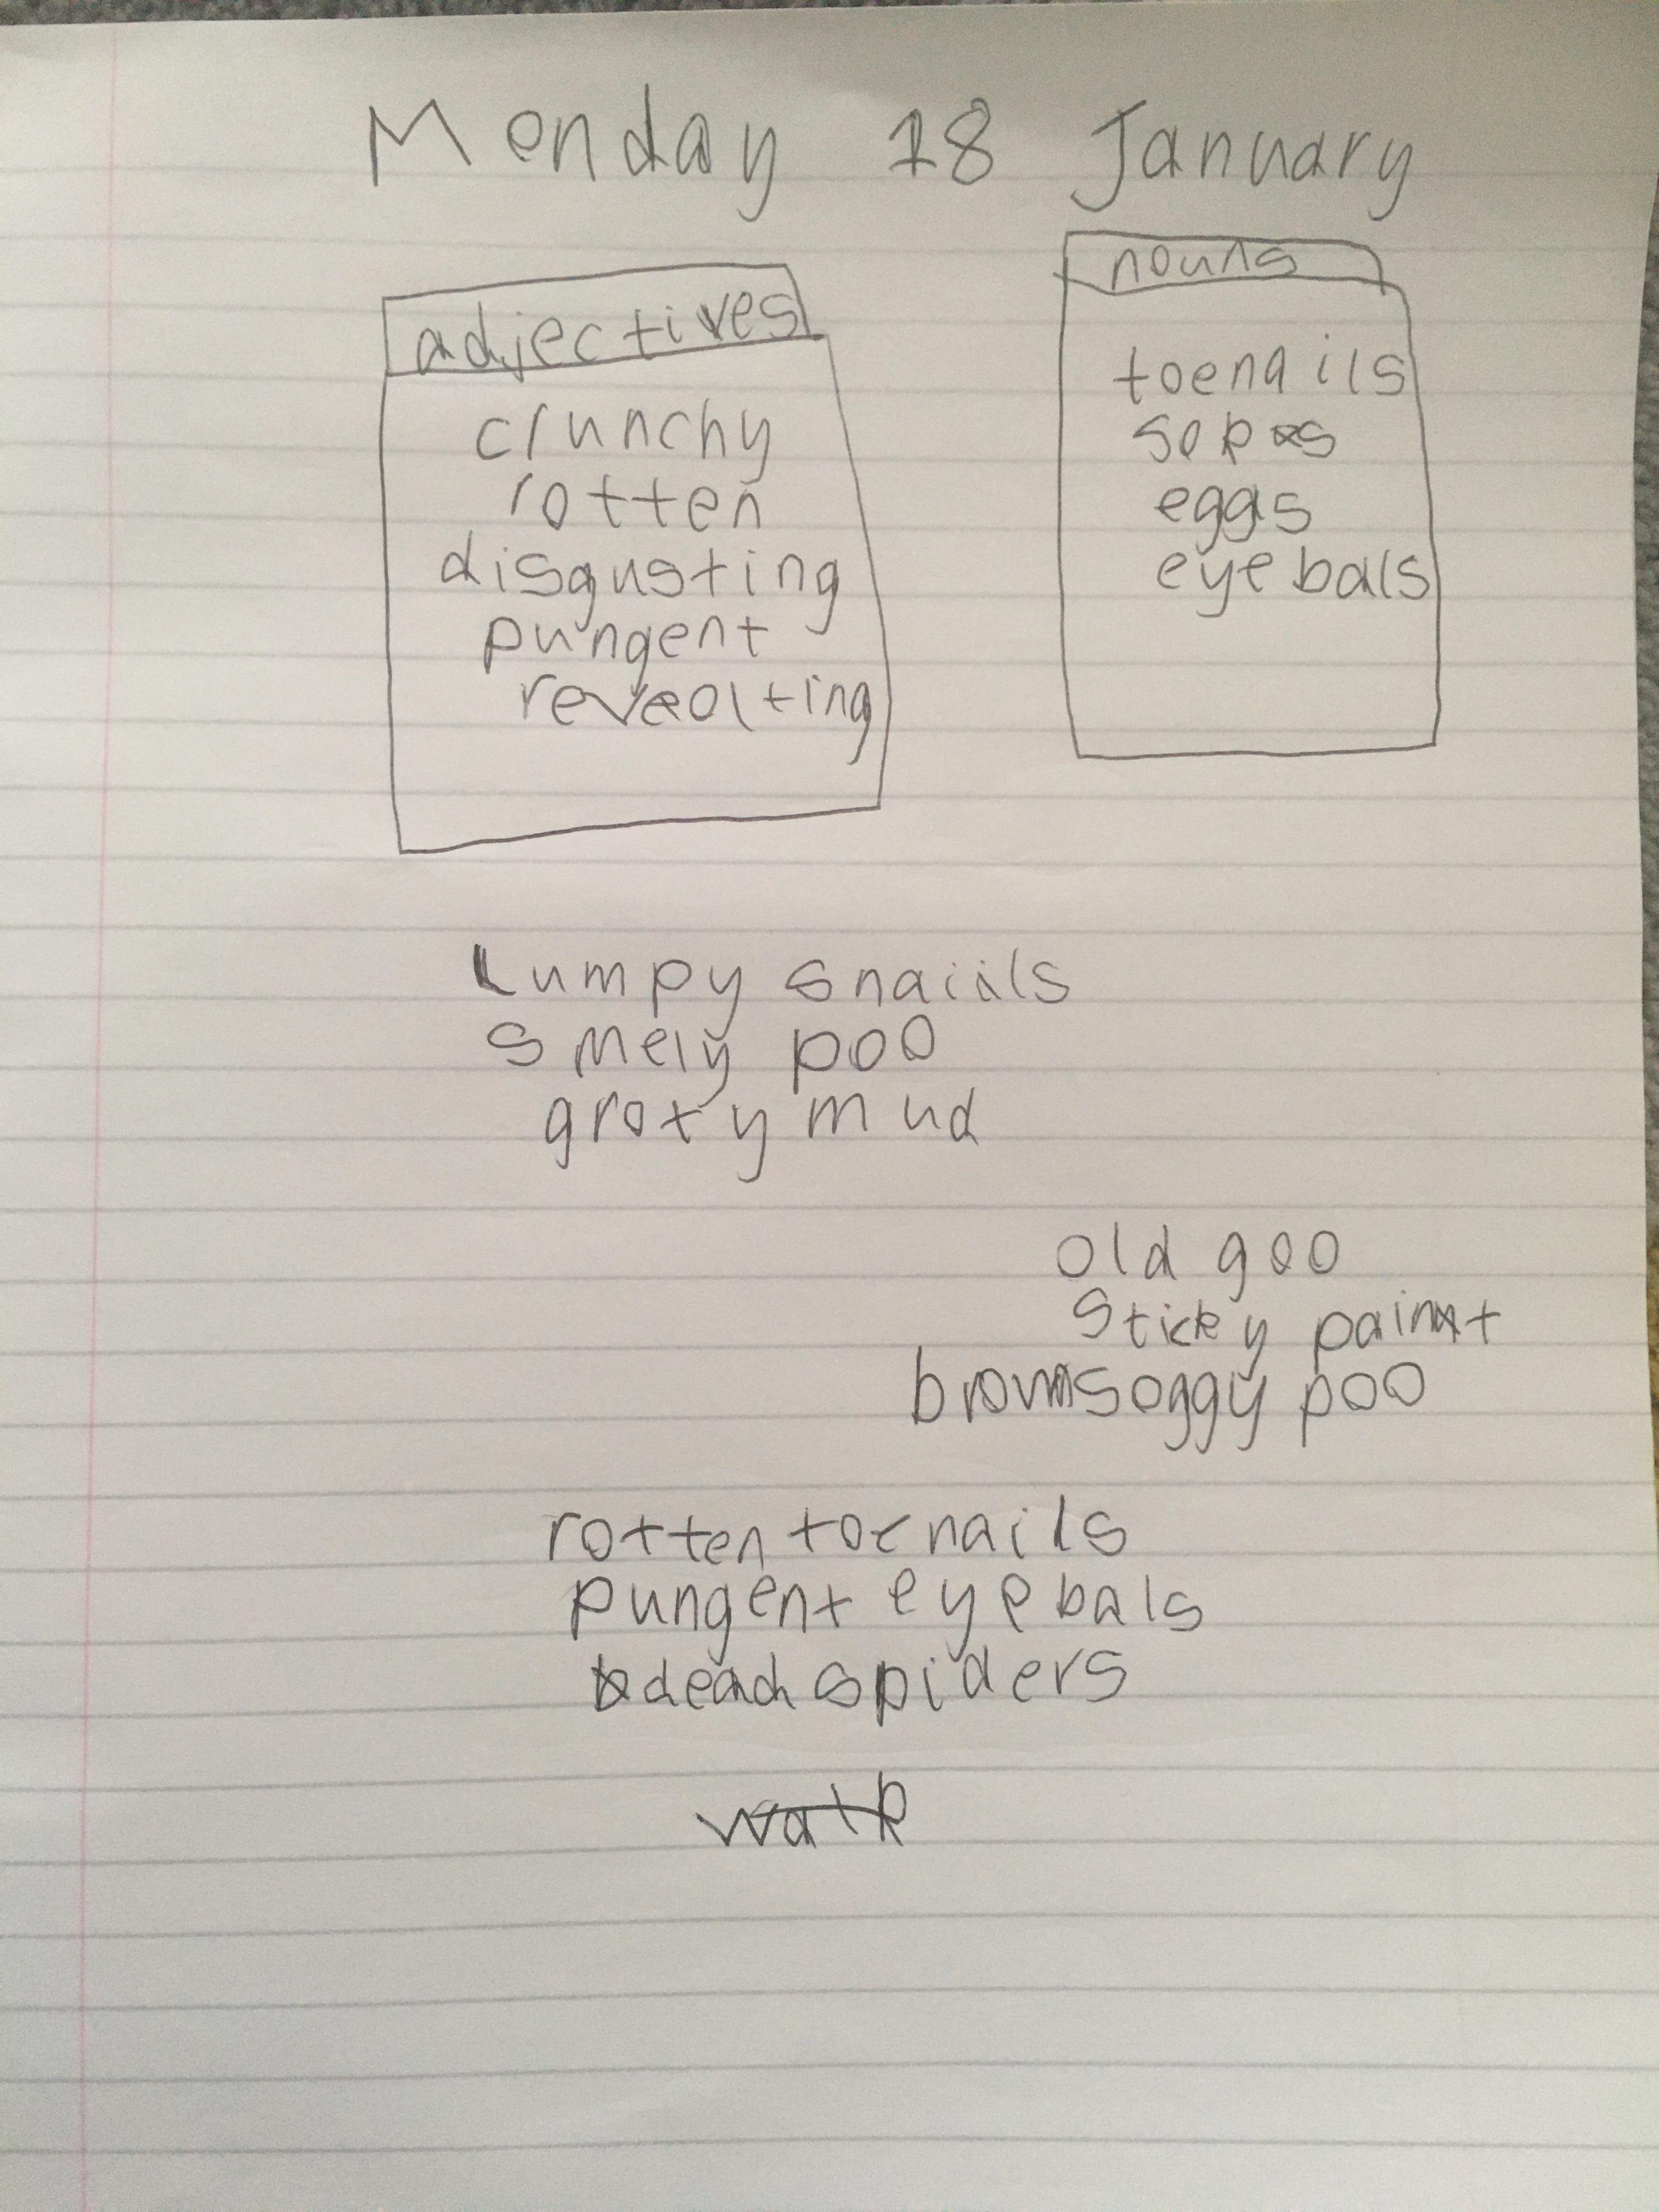 Menday 18 January
adjectives
crunchy
rotten
disgusting
pungent
revolting
nouns
toenails
eggs
eyebals
Lumpy snails
smely poo
groty mud
old goo
sticky paint
brown soggy poo
rotten toenails
pungent eyebals
dead spiders
walk